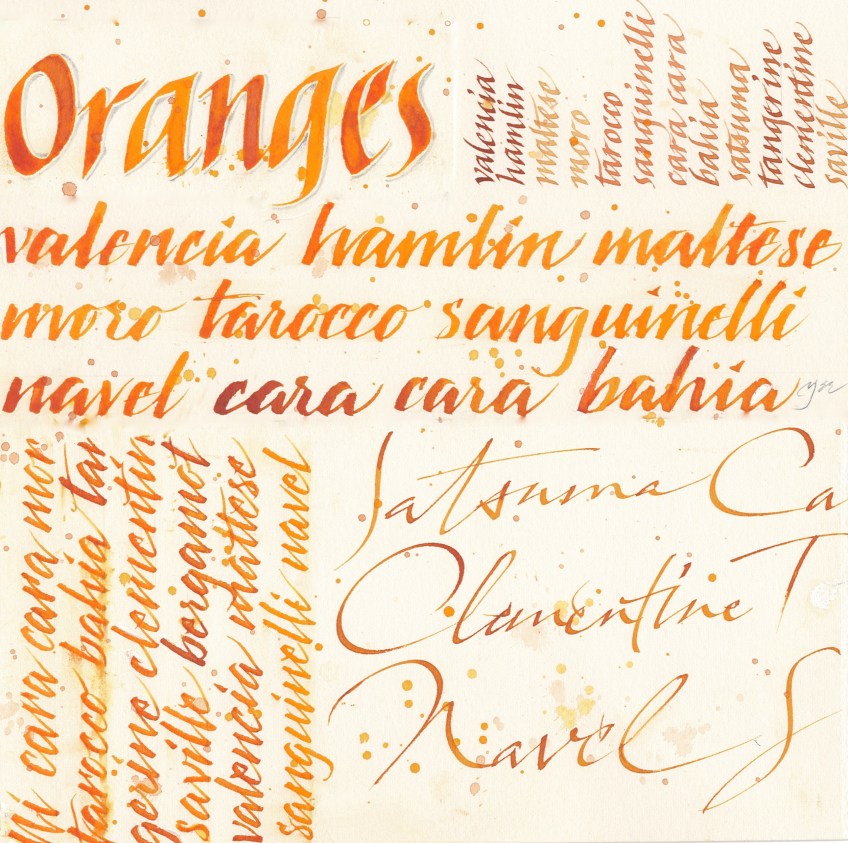 Oranges
valencia
hamlin
maltese
moro
tarocco
sanguinelli
cara cara
bahia
satsuma
tangerine
clementine
saville
valencia hamlin maltese
moro tarocco sanguinelli
navel cara cara bahia
cara cara mor
tarocco bahia tar
gerine clementin
saville bergamot
valencia maltese
sanguinelli navel
Satsuma Ca
Clementine T
Navel S